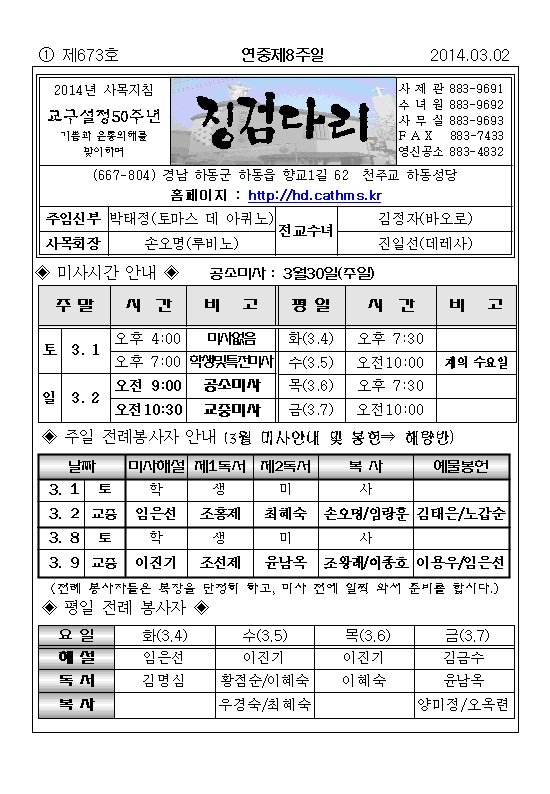 ① 제673호 연중제8주일 2014.03.02
2014년 사목지침
교구설정50주년
기쁨과 은총의해를
맞이하며
징검다리
사 제 관 883-9691
수 녀 원 883-9692
사 무 실 883-9693
F A X 883-7433
영신공소 883-4832
(667-804) 경남 하동군 하동읍 향교1길 62 천주교 하동성당
홈페이지 : http://hd.cathms.kr
주임신부 박태정(토마스 데 아퀴노) 전교수녀 김정자(바오로)
사목회장 손오명(루비노) 진일선(데레사)
◈ 미사시간 안내 ◈ 공소미사 : 3월30일(주일)
주 말 시 간 비 고 평 일 시 간 비 고
토 3. 1 오후 4:00 미사없음 화(3.4) 오후 7:30
오후 7:00 학생및특전미사 수(3.5) 오전10:00 재의 수요일
일 3. 2 오전 9:00 공소미사 목(3.6) 오후 7:30
오전10:30 교중미사 금(3.7) 오전10:00
◈ 주일 전례봉사자 안내 (3월 미사안내 및 봉헌⇒ 해량반)
날짜 미사해설 제1독서 제2독서 복 사 예물봉헌
3. 1 토 학 생 미 사
3. 2 교중 임은선 조홍제 최혜숙 손오명/임랑훈 김태은/노갑순
3. 8 토 학 생 미 사
3. 9 교중 이진기 조선제 윤남옥 조왕래/이종호 이용우/임은선
(전례 봉사자들은 복장을 단정히 하고, 미사 전에 일찍 와서 준비를 합시다.)
◈ 평일 전례 봉사자 ◈
요 일 화(3.4) 수(3.5) 목(3.6) 금(3.7)
해 설 임은선 이진기 이진기 김금수
독 서 김명심 황점순/이혜숙 이혜숙 윤남옥
복 사 우경숙/최혜숙 양미정/오옥련